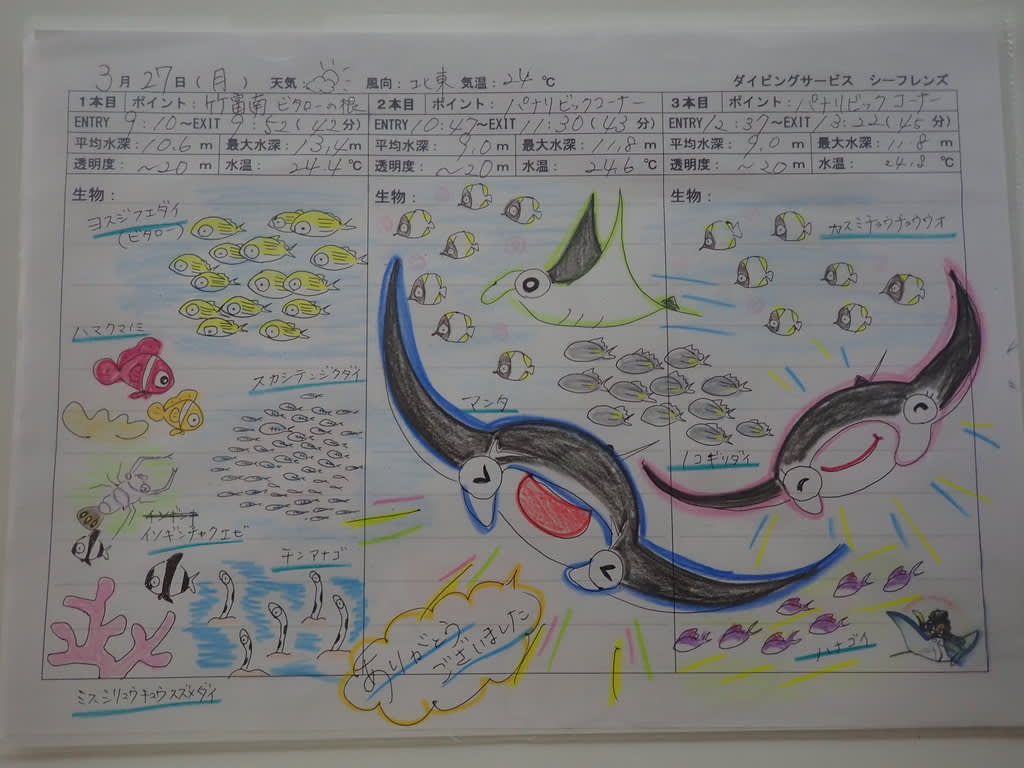 3月27日(月) 天気 風向:北東 気温:24℃ ダイビングサービス シーフレンズ
1本目 ポイント:竹富南 ビタローの根
ENTRY 9:10～EXIT 9:52(42分)
平均水深:10.6m 最大水深:13.4m
透明度:～20m 水温:24.4℃
生物:
ヨスジフエダイ
(ビタロー)
ハマクマノミ
スカシテンジクダイ
イソギンチャクエビ
チンアナゴ
ミスジリュウキュウスズメダイ
2本目 ポイント:パナリビックコーナー
ENTRY 10:47～EXIT 11:30(43分)
平均水深:9.0m 最大水深:11.8m
透明度:～20m 水温:24.6℃
生物:
マンタ
ありがとう
ございました
3本目 ポイント:パナリビックコーナー
ENTRY 12:37～EXIT 13:22(45分)
平均水深:9.0m 最大水深:11.8m
透明度:～20m 水温:24.8℃
生物:
カスミチョウチョウウオ
ノコギリダイ
ハナゴイ